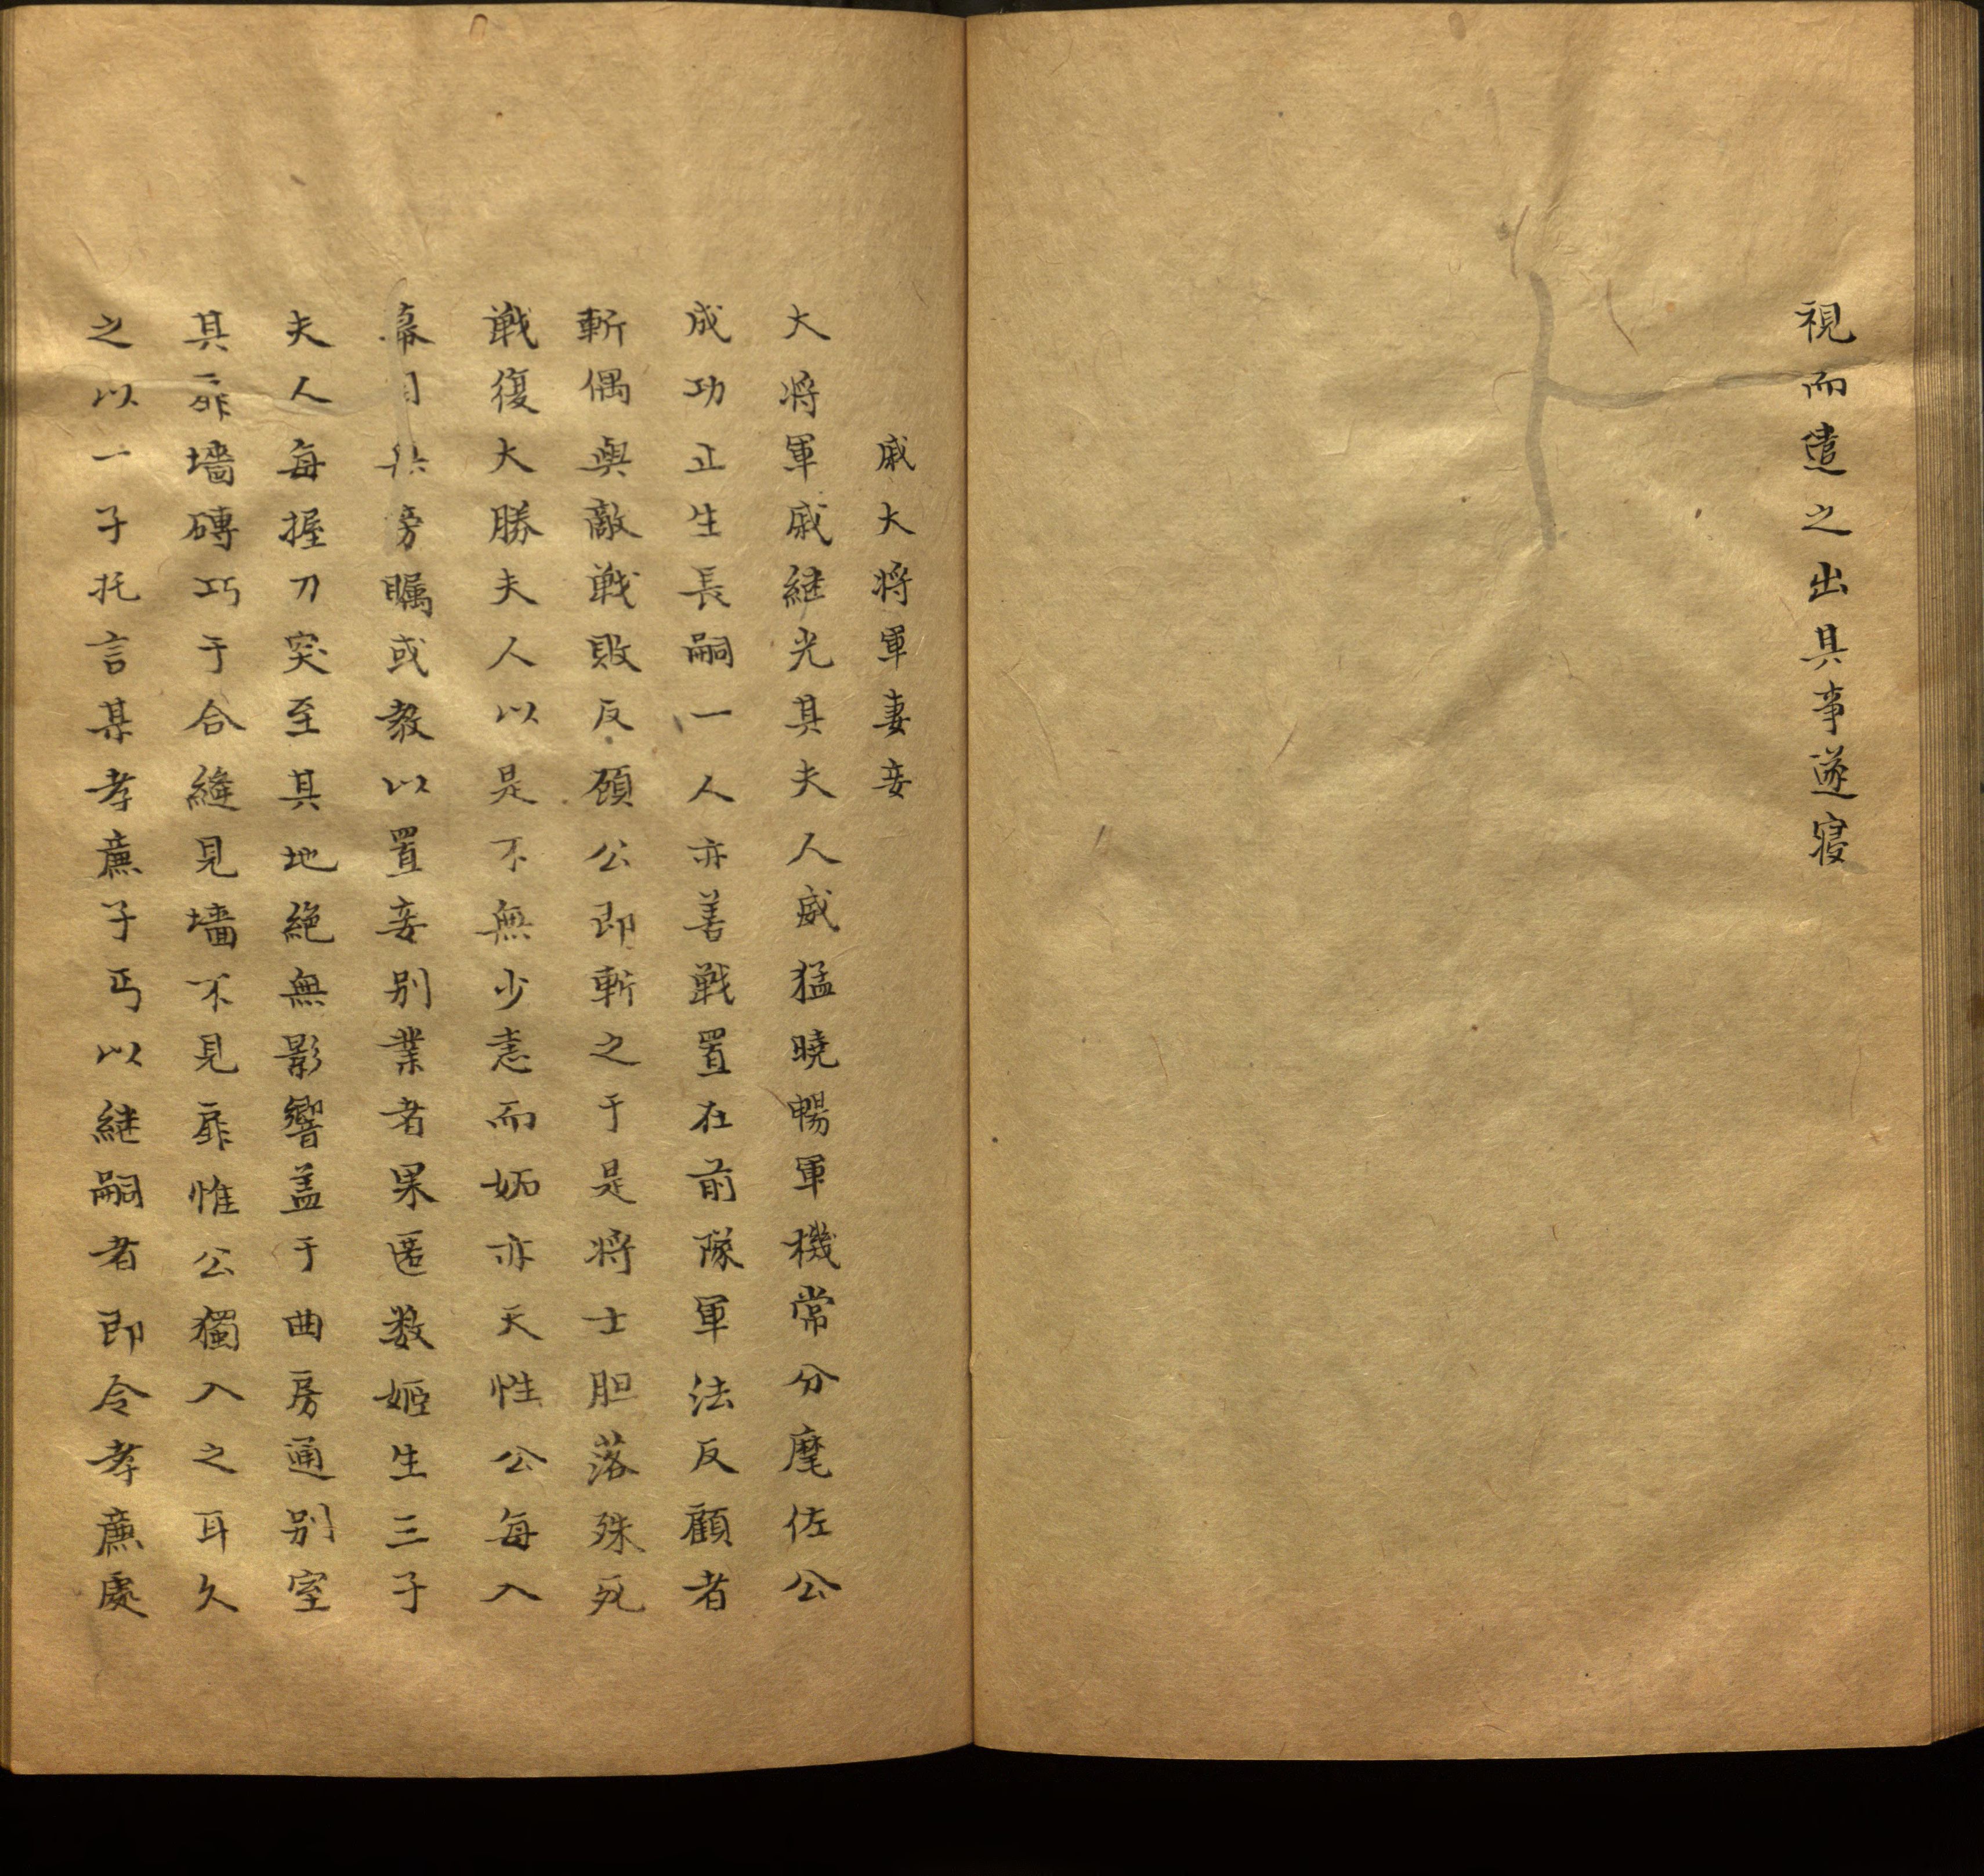 視而遣之出具事遂寢
戚大将軍妻妾
大将軍戚継光其夫人威猛曉暢軍機常分麾佐公
成功止生長嗣一人亦善戦置在前隊軍法反顧者
斬偶與敵戦敗反顧公即斬之于是将士胆落殊死
戦復大勝夫人以是不無少恚而妬亦天性公每入
幕旁矚或教以置妾别業者果匿数姬生三子
夫人每握刀突至其地絶無影響盖于曲房通别室
其扉墻磚巧于合縫見墻不見扉惟公獨入之耳久
之以一子托言某孝廉子丐以継嗣者即令孝廉處